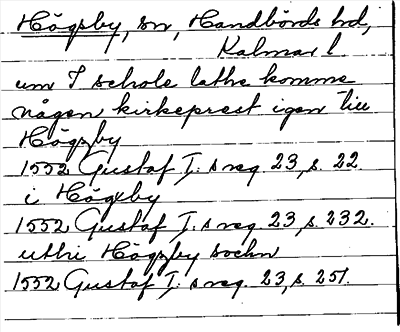 Högsby, sn, Handbörds hd,
Kalmar l
um I schole lathe komme
någen kirkeprest igen till
Högzby
1552 Gustaf I:s reg. 23, s. 22
i Högxby
1552 Gustaf I:s reg. 23, s. 232.
uthi Högzby sochn
1552 Gustaf I:s reg. 23, s. 251.